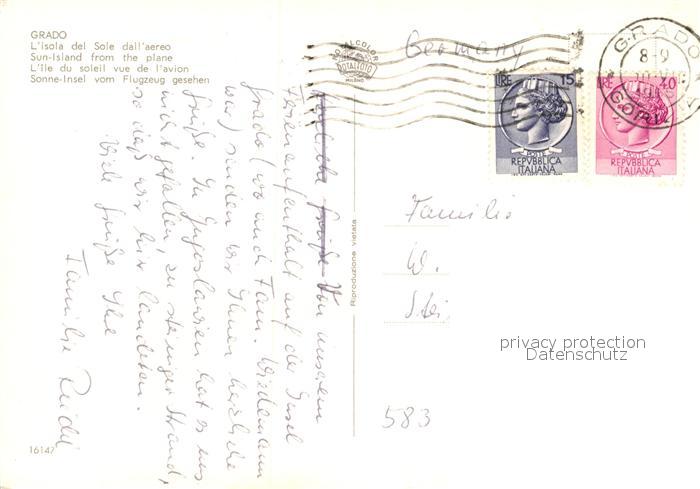 GRADO
L'isola del Sole dall'aereo
Sun-Island from the plane
L'île du soleil vue de l'avion
Sonne-Insel vom Flugzeug gesehen
Von unserem
Ferienaufenthalt auf der Insel
Grado (wo auch Fam. Wiedemann
war) senden wir Ihnen herzliche
Grüße. In Jugoslawien hat es uns
nicht gefallen, zu steiniger Strand,
so daß wir hier landeten.
Viele Grüße Ihre
Familie
16147
Riproduzione vietata
TOTALCOLOR
ROTALFOTO
MILANO
Germany
GRADO
8-9
LIRE 15
POSTE
REPVBBLICA
ITALIANA
LIRE 40
POSTE
REPVBBLICA
ITALIANA
Familie
W.
Stei
privacy protection
Datenschutz
583